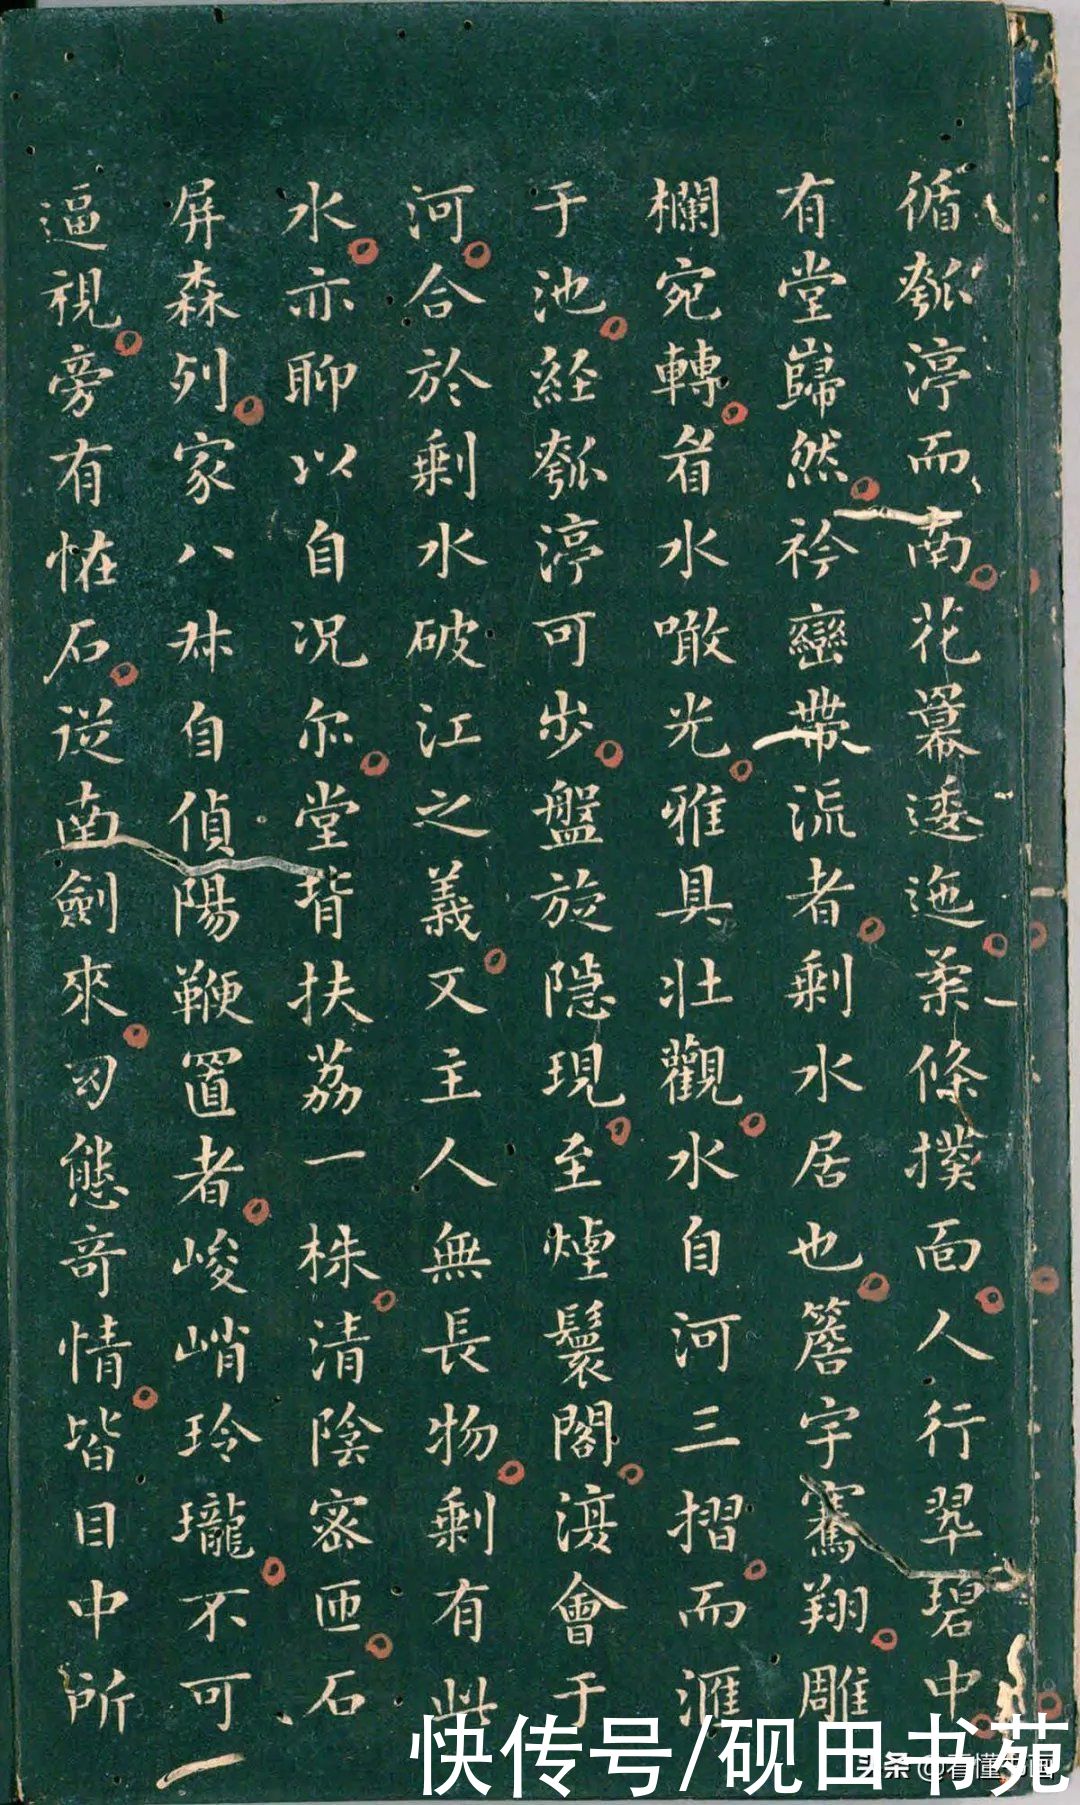 循瓠渟而南花羃逶迤柔條撲面人行翠碧中
有堂巋然衿巒帶流者剩水居也簷宇騫翔雕
欄宛轉看水噉光雅具壯觀水自河三摺而滙
于池経瓠渟可步盤旋隱現至煙鬟閣復會于
河合於剩水破江之義又主人無長物剩有此
水亦聊以自况尔堂背扶荔一株清陰密匝石
屏森列家八叔自偵陽鞭置者峻峭玲瓏不可
逼視旁有恠石從南劍來幻態奇情皆目中所
快传号/砚田书苑
头条 @看懂书画